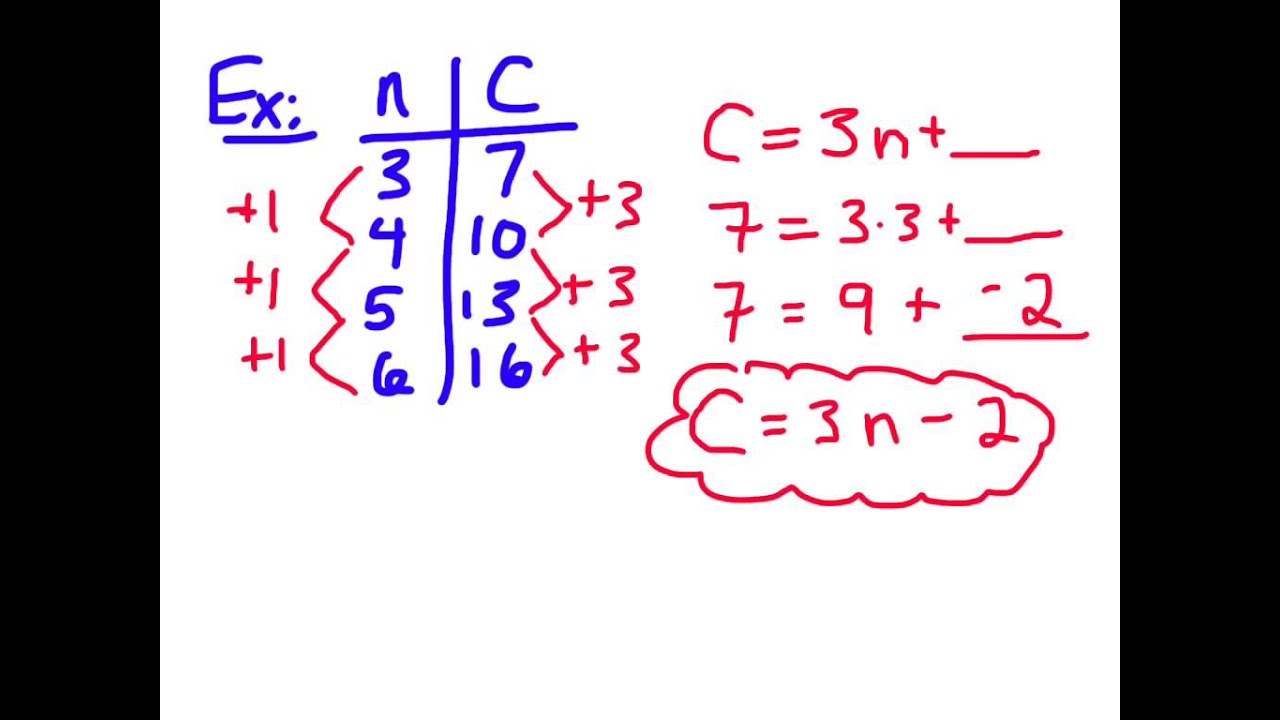 Ex: n C
3 7
+1 +3
4 10
+1 +3
5 13
+1 +3
6 16
C = 3n + __
7 = 3·3 + __
7 = 9 + -2
C = 3n - 2